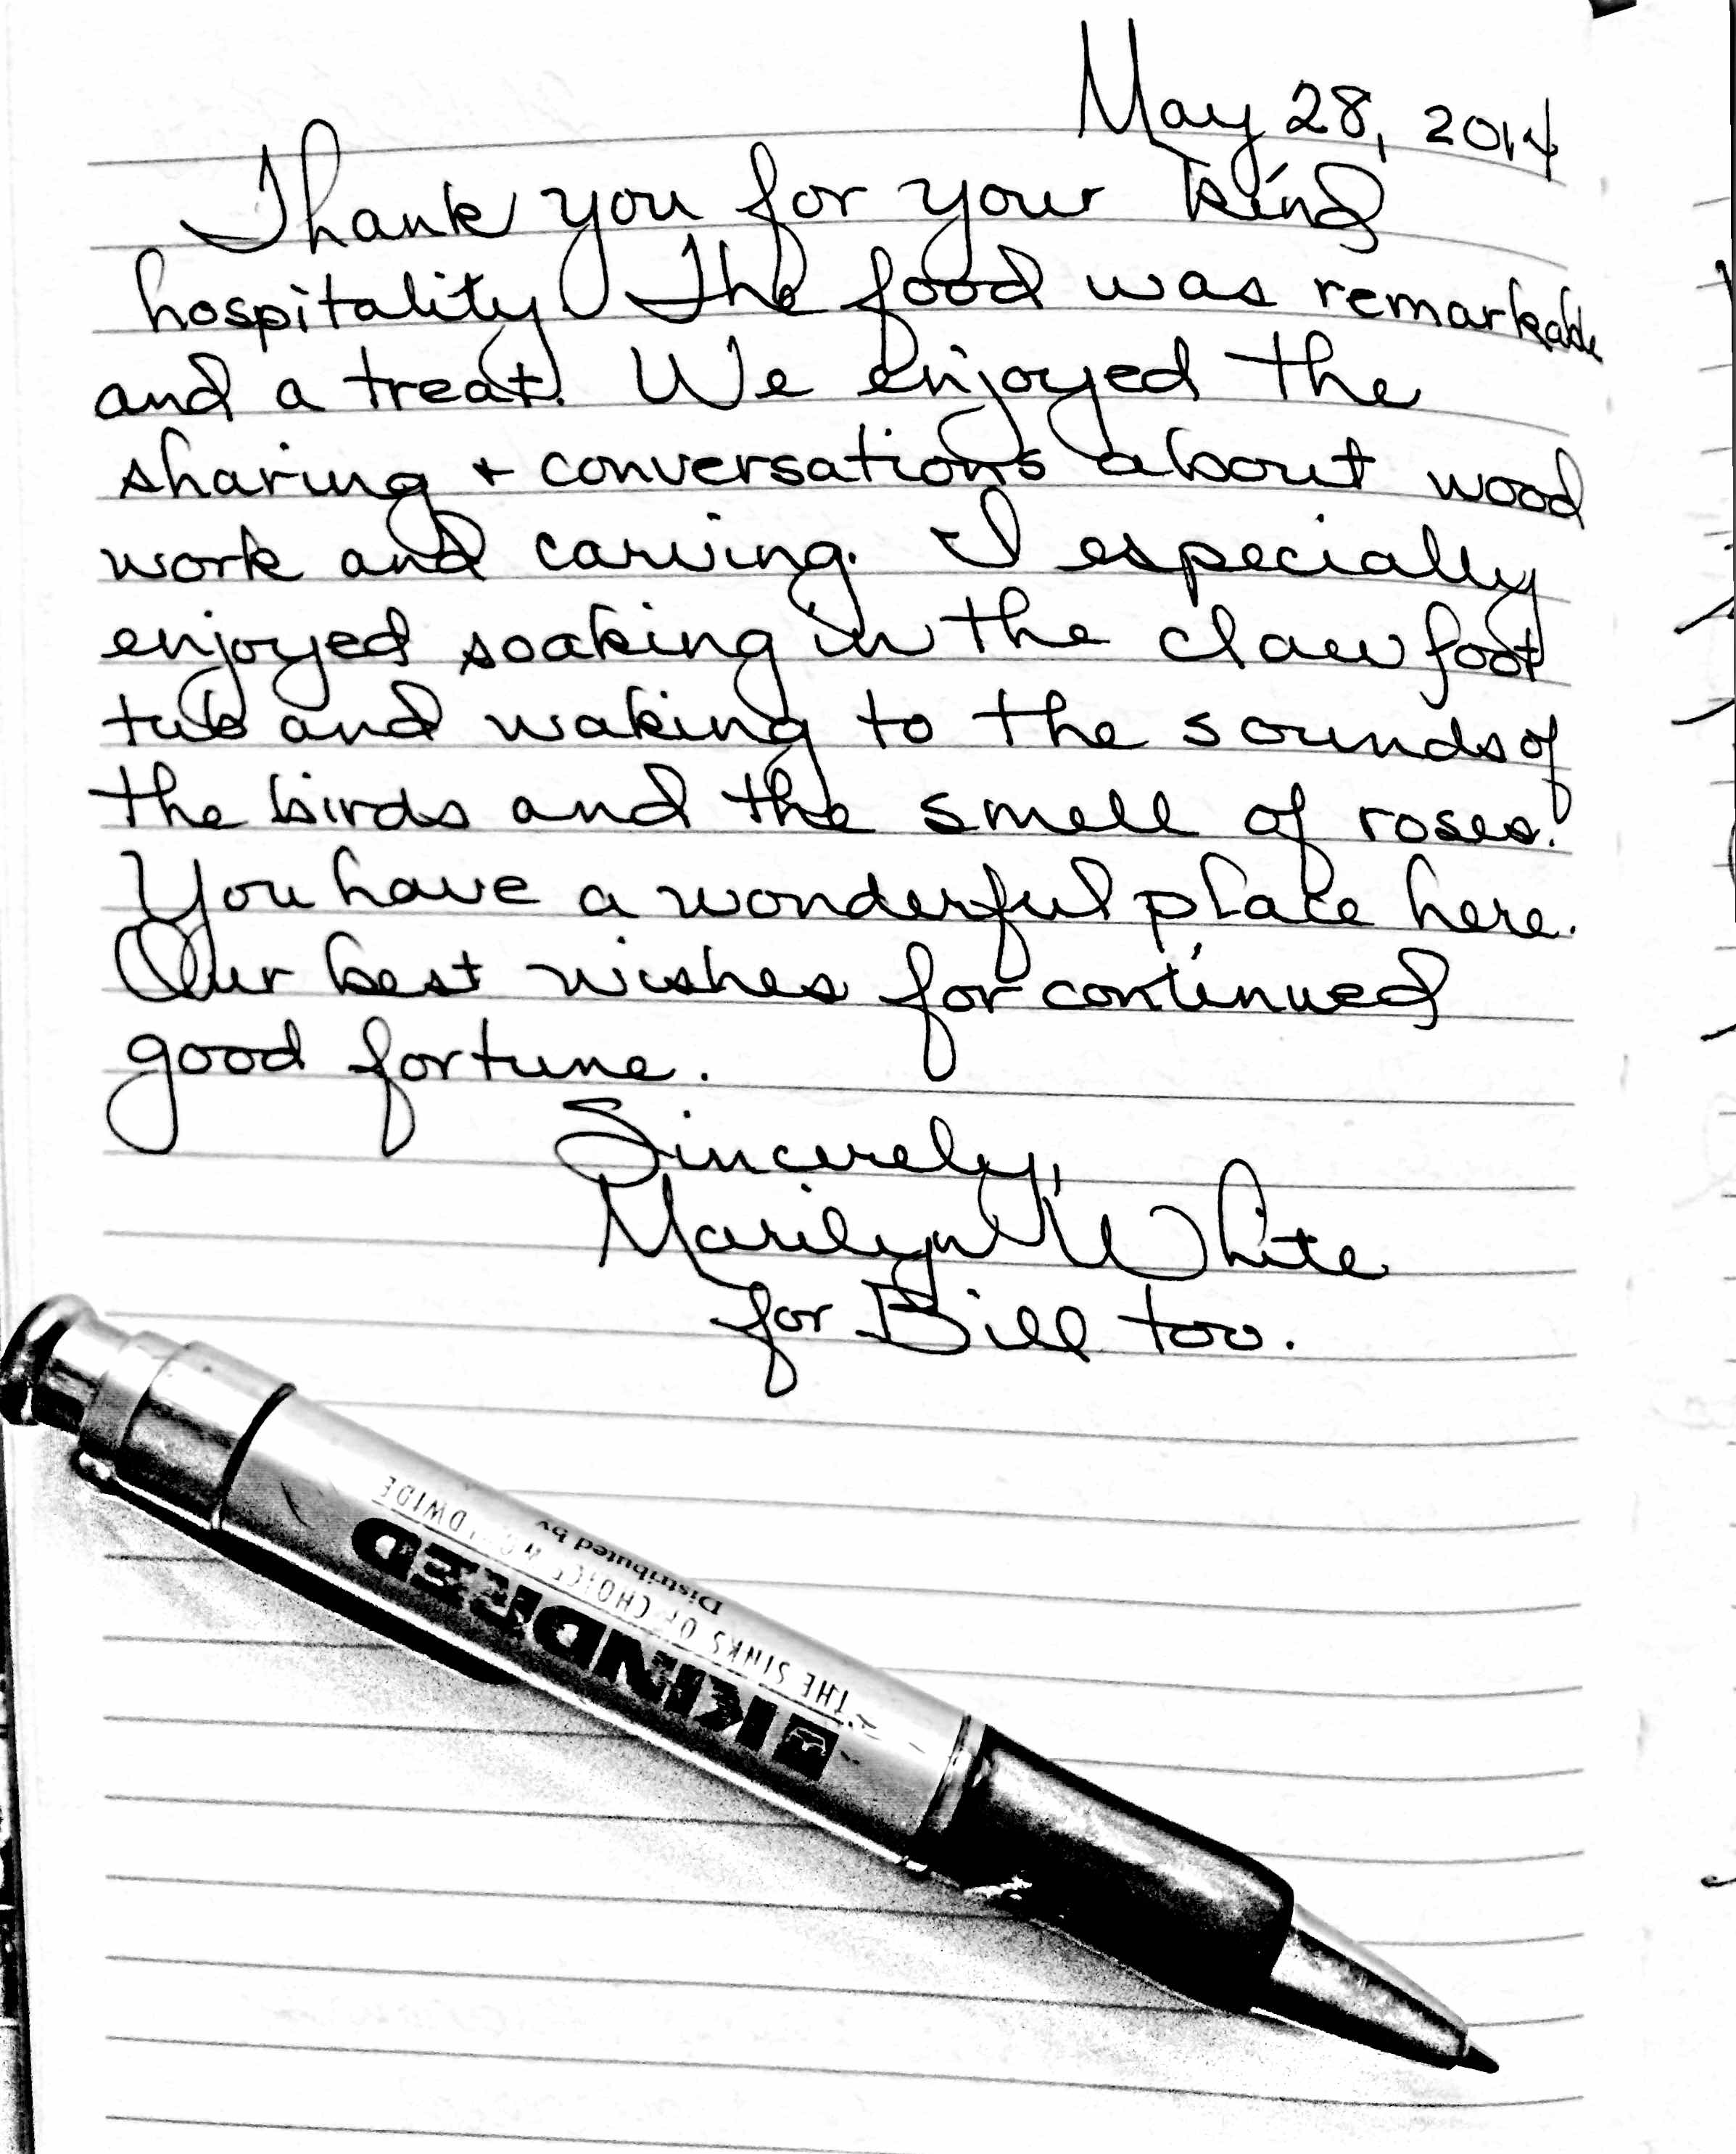 May 28, 2014
Thank you for your kind
hospitality. The food was remarkable
and a treat. We enjoyed the
sharing + conversations about wood
work and carving. I especially
enjoyed soaking in the claw foot
tub and waking to the sounds of
the birds and the smell of roses.
You have a wonderful place here.
Our best wishes for continued
good fortune.
Sincerely,
Marilyn White
for Bill too.
KINDRED
THE SINKS OF CHOICE WORLDWIDE
Distributed by